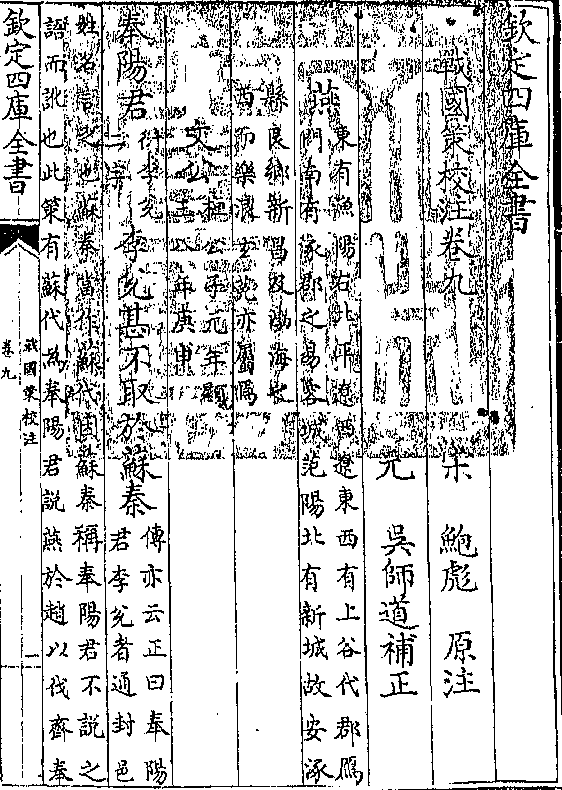 欽定四庫全書
戰國策校注卷九
宋 鮑彪 原注
元 吳師道補正
燕
東有漁陽右北平遼西遼東西有上谷代郡鴈
門南有涿郡之易容城范陽北有新城故安涿
縣良鄉新昌及渤海安
西而樂浪玄菟亦屬焉
文公
桓公子元年顯
王八年庚申
奉陽君李兌甚不取於蘇秦
衍李兌二字
傳亦云正曰奉陽
君李兌者通封邑
姓名言之也蘇秦當作蘇代因蘇秦稱奉陽君不說之
語而訛也此策有蘇代為奉陽君說燕於趙以伐齊奉
欽定四庫全書
戰國策校注
卷九
一